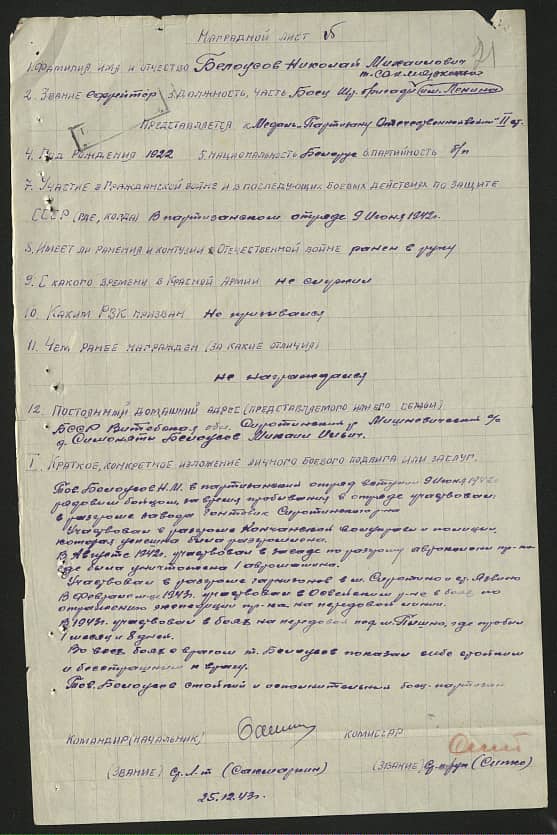 Наградной лист
21
1. Фамилия имя и отчество Белоусов Николай Михайлович
2. Звание ефрейтор 3. Должность, часть Боец бригады им. Ленина
Представляется к Медаль „Партизану Отечественной войны" II ст.
4. Год рождения 1922 5. Национальность Белорус 6. Партийность б/п
7. Участие в Гражданской войне и в последующих боевых действиях по защите
СССР (где, когда) В партизанском отряде 9 Июня 1942г.
8. Имеет ли ранения и контузии в Отечественной войне ранен в руку
9. С какого времени в Красной Армии не служил
10. Каким РВК призван Не призывался
11. Чем ранее награжден (за какие отличия)
не награждался
12. Постоянный домашний адрес (представляемого и его семьи)
БССР Витебская обл. Сиротинский р Мишневический с/с
д. Симонята Белоусов Михаил
I. Краткое, конкретное изложение личного боевого подвига или заслуг.
Тов. Белоусов Н.М. в партизанский отряд вступил 9 Июня 1942г.
рядовым бойцом, за время пребывания в отряде участвовал:
в разгроме завода Сиротинского р-на
Участвовал в разгроме волуправы и полиции,
которая успешно была разгромлена.
В Августе 1942г. участвовал в засаде по разгрому автоколонны пр-ка
где была уничтожена 1 автомашина.
Участвовал в разгроме гарнизонов в м. Сиротино и ст. Язвино
В Феврале 1943г. участвовал в р-не в боях по
отражению экспедиции пр-ка на передовой линии.
В 1943г. участвовал в боях на передовой под м. где пробыл
1 месяц и 8 дней.
Во всех боях с врагом т. Белоусов показал себя стойким
и бесстрашным к врагу.
Тов. Белоусов стойкий и исполнительный боец-партизан
Командир (начальник) Комиссар
(Звание) Ст. л-т (Сакмаркин) (Звание)
25.12.43г.